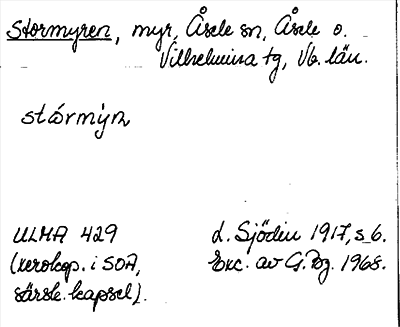 Stormyren, myr, Åsele sn, Åsele o.
Vilhelmina tg, Vb. län.
stórmỳn
ULMA 429
(xerokop. i SOA,
särsk. kapsel).
L. Sjödin 1917, s 6.
Exc. av G. Bg. 1968.